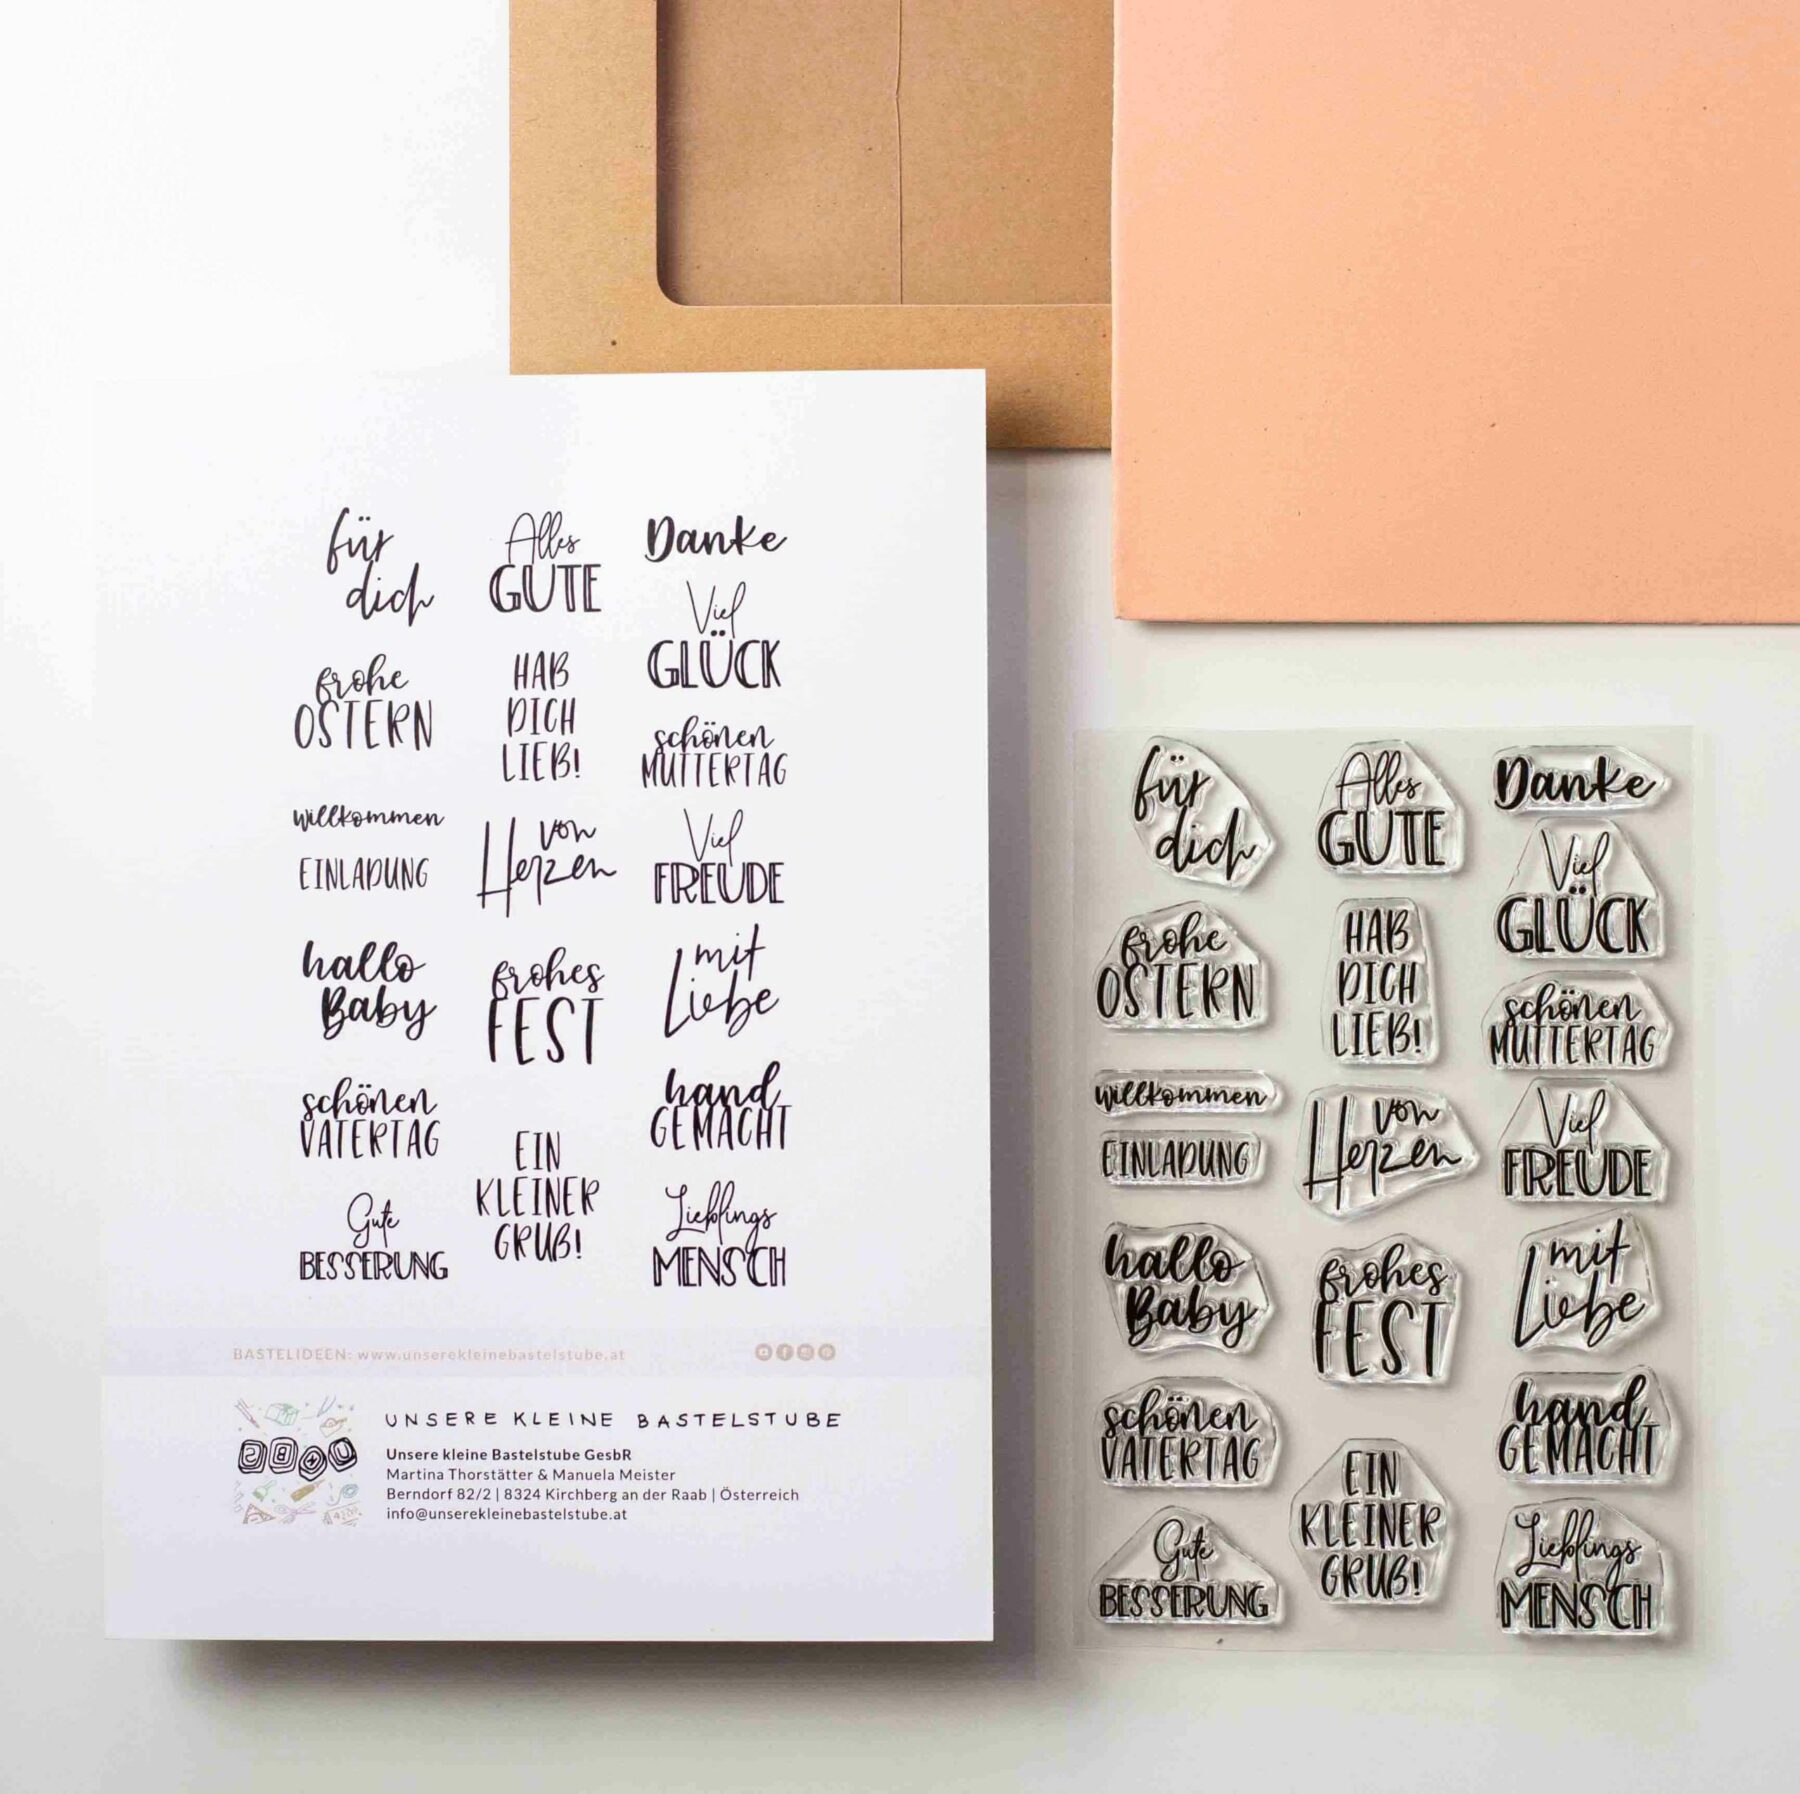 für
dich
frohe
OSTERN
willkommen
EINLADUNG
hallo
Baby
schönen
VATERTAG
Gute
BESSERUNG
Alles
GUTE
HAB
DICH
LIEB!
von
Herzen
frohes
FEST
EIN
KLEINER
GRUß!
Danke
Viel
GLÜCK
schönen
MUTTERTAG
Viel
FREUDE
mit
Liebe
hand
GEMACHT
Lieblings
MENSCH
BASTELIDEEN: www.unserekleinebastelstube.at
UNSERE KLEINE BASTELSTUBE
Unsere kleine Bastelstube GesbR
Martina Thorstätter & Manuela Meister
Berndorf 82/2 | 8324 Kirchberg an der Raab | Österreich
info@unserekleinebastelstube.at
für
dich
frohe
OSTERN
willkommen
EINLADUNG
hallo
Baby
schönen
VATERTAG
Gute
BESSERUNG
Alles
GUTE
HAB
DICH
LIEB!
von
Herzen
frohes
FEST
EIN
KLEINER
GRUß!
Danke
Viel
GLÜCK
schönen
MUTTERTAG
Viel
FREUDE
mit
Liebe
hand
GEMACHT
Lieblings
MENSCH